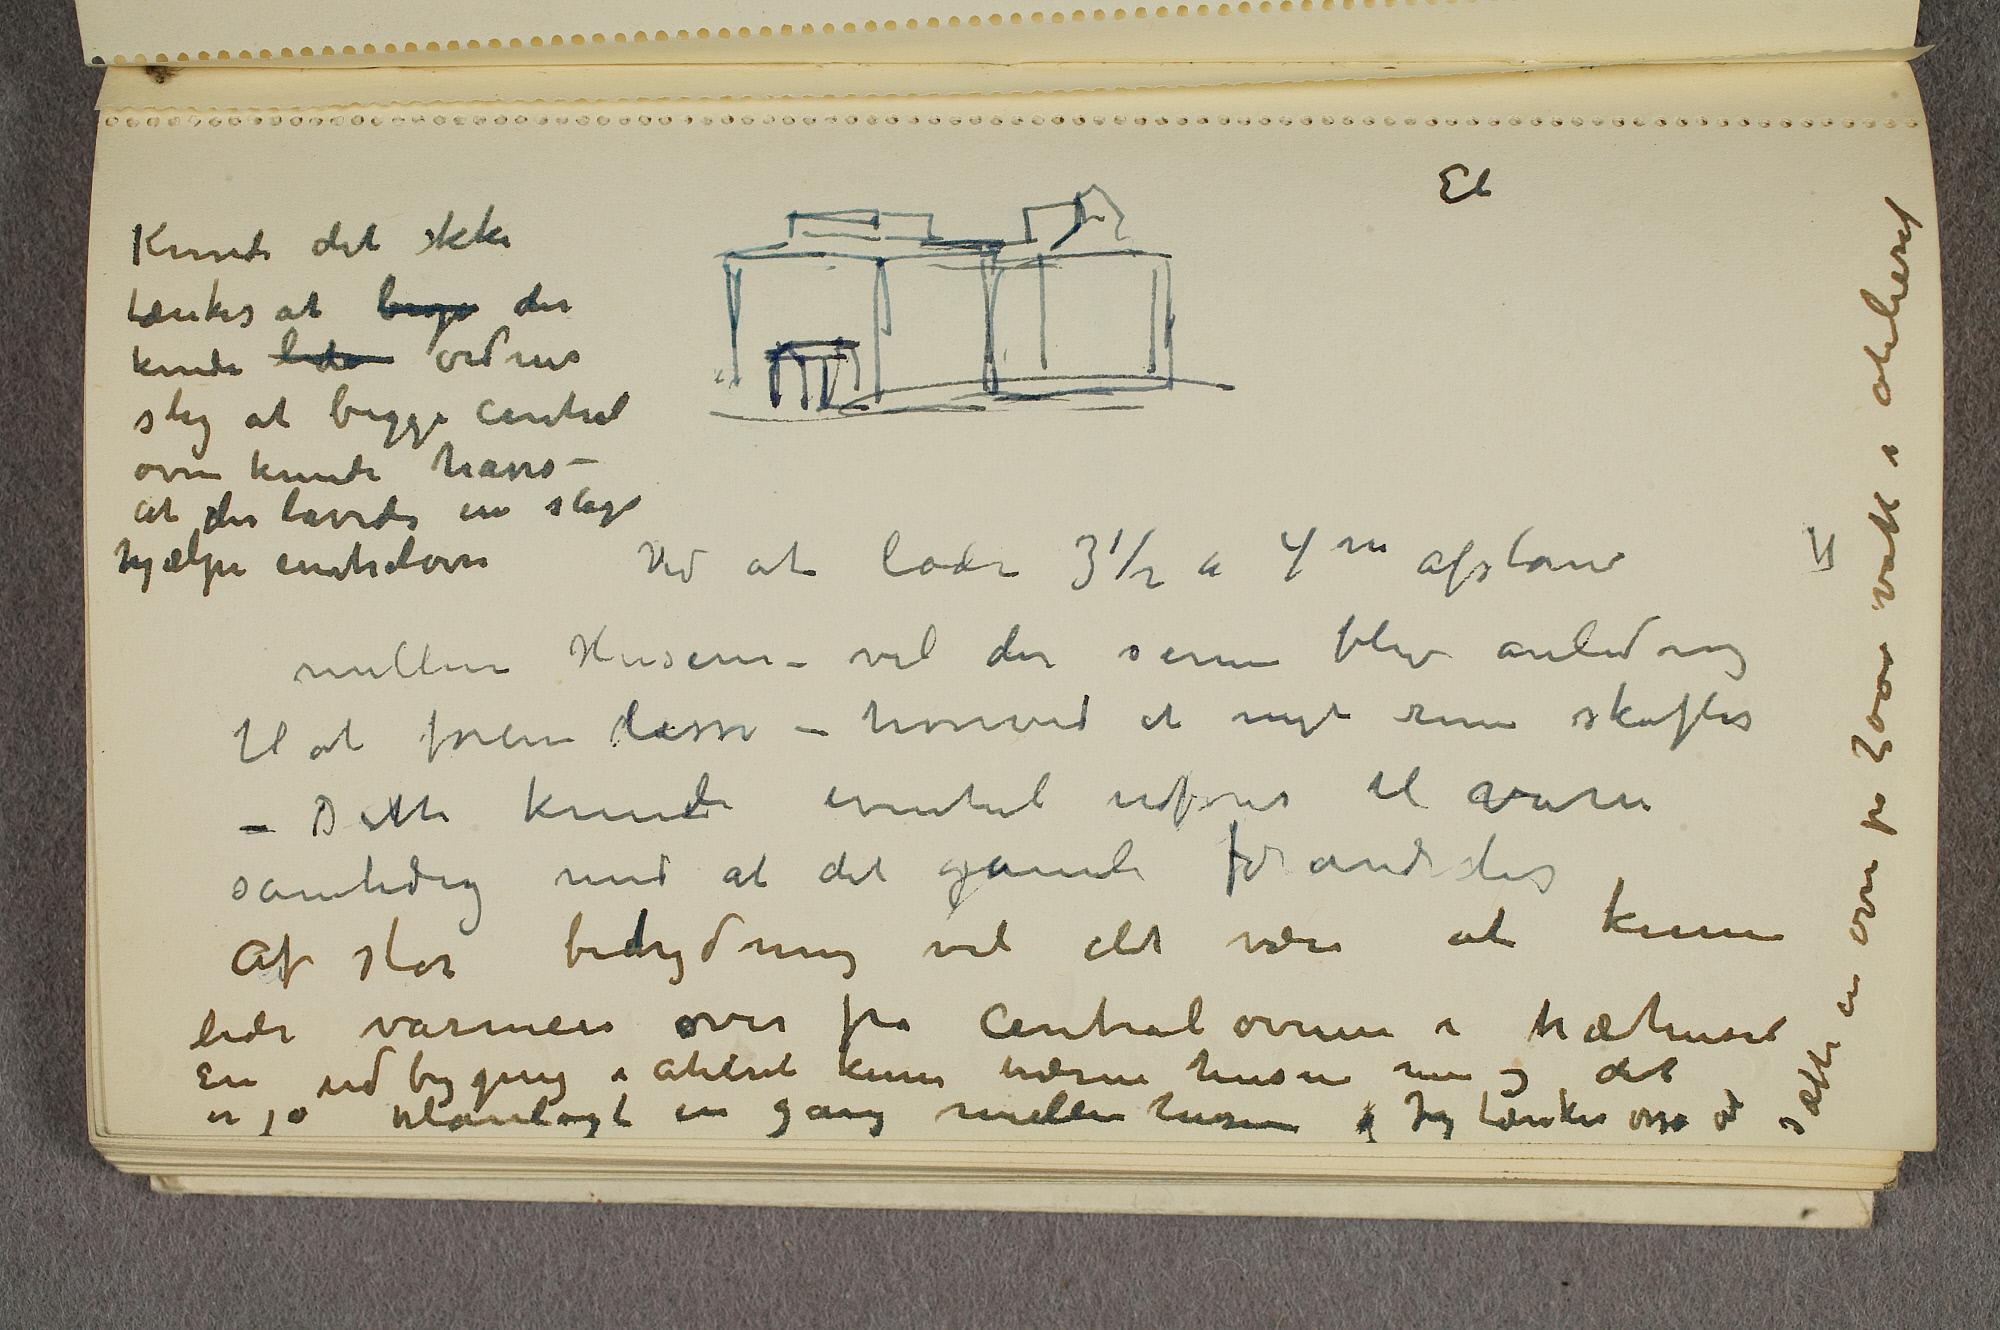 El
Kunde det ikke
tænkes at bege der
kunde lede ordnes
slig at begge central
ovne kunde
at der lavedes en slags
hjælpe centralovn
Ved at lade 3½ a 4 m afstand
mellem Husene – vel der senere blive anledning
til at forene disse – hvorved et nyt rum skaftes
– Dette kunde eventuel udføres til våren
samtidig med at det gamle forandredes
Af stor betydning vel det være at kunne
lede varmen over fra Centralovnen i træhuset
En udbygging i atelieret kunne nærme husene mere og det
er jo planlagt en gang mellem husene Jeg tænker også at
sætte en ovn på 2000 watt i atelieret